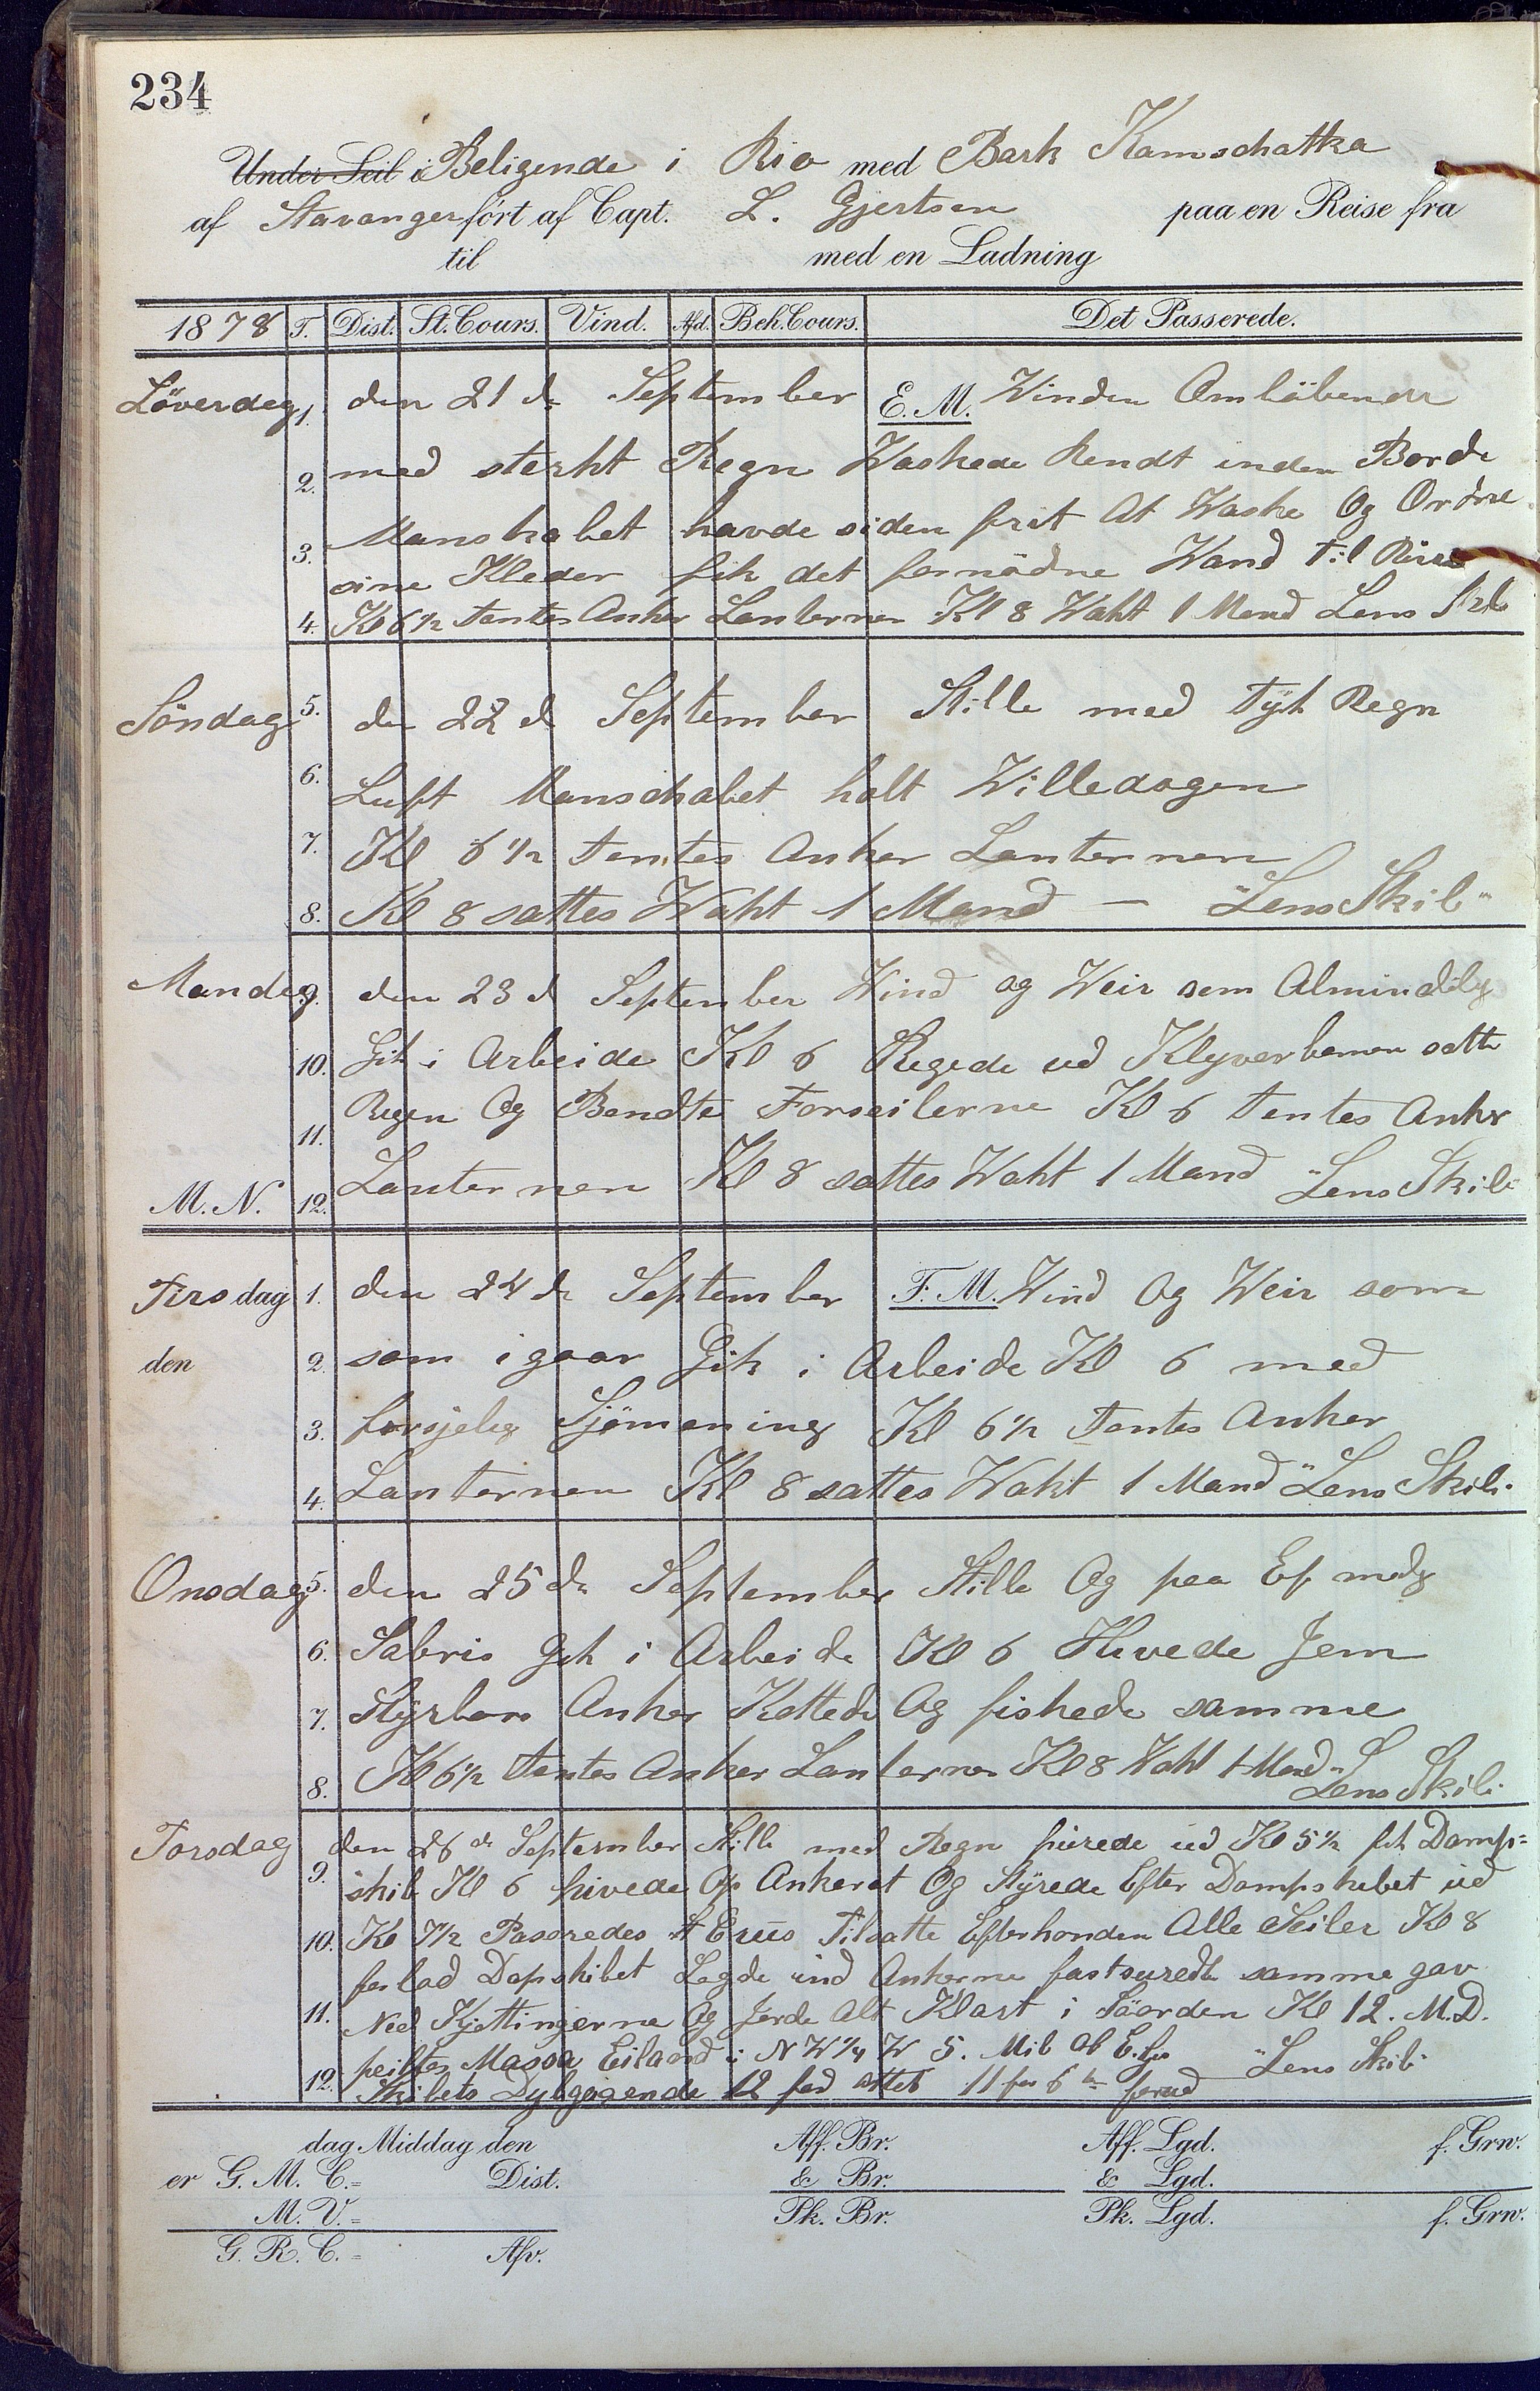 234
Under Seil i Beligende i Rio med Bark Kamschatka
af Stavanger ført af Capt. L. Gjertsen paa en Reise fra
til med en Ladning
1878 T. Dist. St. Cours. Vind. Afd. Beh. Cours. Det Passerede.
Löverdag 1. den 21 de September E. M. Winden Omlöbende
2. med sterkt Regn Waskede Rendt inden Borde
3. Manskabet havde siden frit At Waske Og Ordne
sine Kleder fik det fornödne Wand til Reise
4. Kl 6 1/2 tentes Anker Lanternen Kl 8 Waht 1 Mand Lens Skib
Söndag 5. den 22 d September Stille med Tyk Regn
6. Luft Manschabet holt Willedagen
7. Kl 6 1/2 tentes Anker Lanternen
8. Kl 8 sattes Waht 1 Mand — "Lens Skib"
Mandag 9. den 23 d September Wind og Weir som Almindelig
10. Gik i Arbeide Kl 6 Regede ud Klyverbomen satte
11. Regen Og Bendte Forseilerne Kl 6 tentes Anker
M. N. 12. Lanternen Kl 8 sattes Waht 1 Mand "Lens Skib"
Tirsdag 1. den 24 de September F. M. Wind Og Weir som
den 2. som igaar Gik i Arbeide Kl 6 med
3. forsjelig Sjömening Kl 6 1/2 Tentes Anker
4. Lanternen Kl 8 sattes Wakt 1 Mand "Lens Skib"
Onsdag 5. den 25 de September Stille Og paa Ef mdg
6. Sabris Gik i Arbeide Kl 6 Hevede Jem
7. Styrbors Anker Kattede Og fiskede samme
8. Kl 6 1/2 tentes Anker Lanternen Kl 8 Waht 1 Mand "Lens Skib"
Torsdag den 26 de September Stille med Regn purede ud Kl 5 1/2 fik Damp=
9. skib Kl 6 hivede Op Ankeret Og Styrede Efter Dampskebet ud
10. Kl 7 1/2 Passredes St Crus Tilsatte Efterhonden Alle Seiler Kl 8
forlod Dapskibet Lagde ind Ankerne fastsuredte samme gav
11. Ned Kjettingerne Og Jorde Alt Klart i Sdorden Kl 12. M.D.
peiltes Eiland i N W 1/4 W 5. Mil Af "Lens Skib"
12. Skibets Dybgagende 12 fod attet 11 fod 6 to forud
dag Middag den Aff. Br. Aff. Lgd. f. Grw.
er G. M. C.= Dist. & Br. & Lgd.
M. V.= Pk. Br. Pk. Lgd. f. Grw.
G. R. C.= Afv.